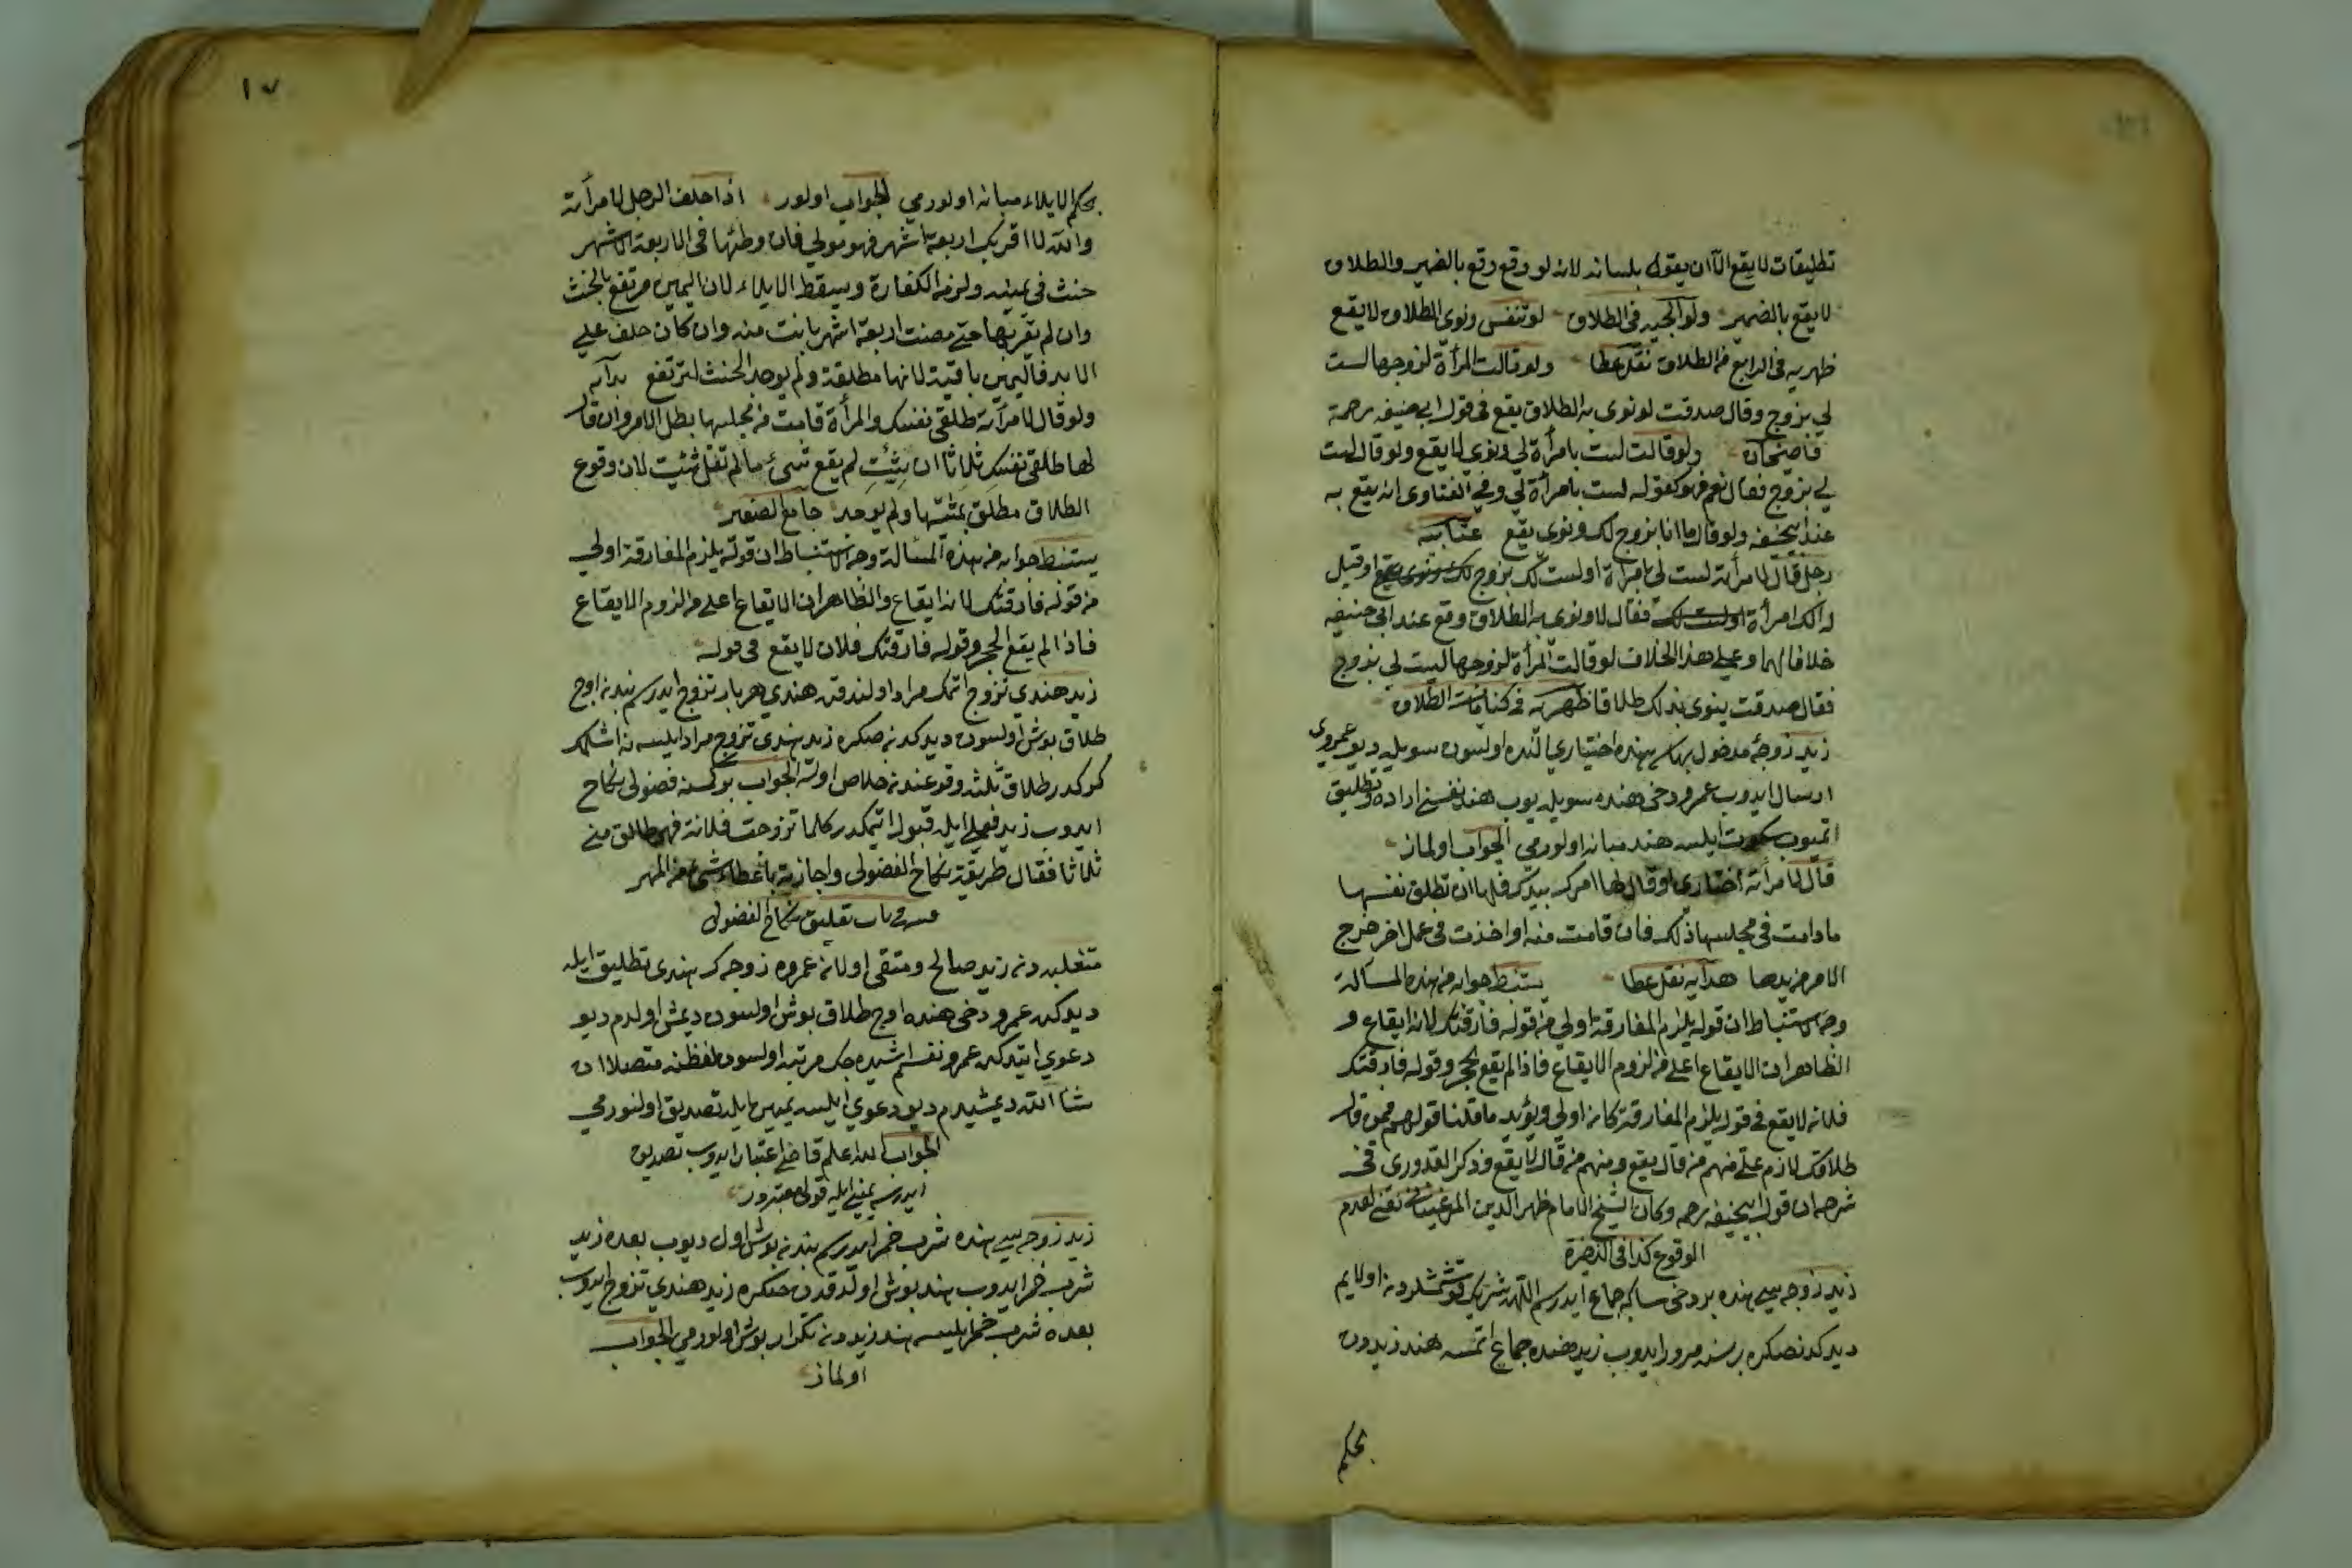 تطليقات لا يقع الا ان يقوله بلسانه لانه لو وقع وقع بالضمير والطلاق
لا يقع بالضمير ولوالجيه فى الطلاق لو تنفس ونوى الطلاق لا يقع
ظهريه فى الرابع من الطلاق نقل عطا ولو قالت المرأة لزوجها لست
لي بزوج وقال صدقت لو نوى به الطلاق يقع فى قول ابى حنيفه رحمة
قاضيخان ولو قالت لست بامرأة لي ونوى لا يقع ولو قال لست
لي بزوج فقال نعم فهو كقوله لست بامرأة لي وفى الفتاوى انه يقع به
عند ابيحنيفه ولو قال ما انا بزوج لك ونوى يقع عتابيه
رجل قال لامرأته لست لي بامرأة او لست لك بزوج او قيل
له الك امرأة فقال لا ونوى به الطلاق وقع عند ابى حنيفه
خلافا لهما وعلى هذا الخلاف لو قالت المرأة لزوجها ليست لي بزوج
فقال صدقت ينوى بذلك طلاقا ظهريه فى كنايات الطلاق
زيد زوجۀ مدخول بهاسى هنده اختيارى النده اولسون سويله ديو عمروى
ارسال ايدوب عمرو دخى هنده سويليوب هند نفسنى اراده وتطليق
اتميوب سكوت ايلسه هند مبانه اولورمى الجواب اولماز
قال لامرأته اختارى او قال لها امرك بيدك فلها ان تطلق نفسها
مادامت فى مجلسها ذلك فان قامت منه او اخذت فى عمل اخر خرج
الامر من يدها هدايه نقل عطا يستنبط جوابه من هذه المسألة
وجه الاستنباط ان قوله يلزم المفارقة اولى من قوله فارقتك لانه ايقاع و
الظاهر ان الايقاع اعلى من لزوم الايقاع فاذا لم يقع بمجرد قوله فارقتك
فلانه لا يقع فى قوله يلزم المفارقة كانه اولى ويؤيد ما قلنا قولهم فمن قال
طلاقك لازم على منهم من قال يقع ومنهم من قال لا يقع وذكر القدورى فى
شرحه ان قول ابيحنيفه رحمه وكان الشيخ الامام ظهر الدين المرغينانى يفتى بعدم
الوقوع كذا فى الذخيرة
زيد زوجه سى هنده بر دخى سا كه جماع ايدرسم اللهه شريك قوشمشلردن اولايم
ديدكدنصكره بر سنه مرور ايدوب زيد هنده جماع اتمسه هند زيددن
بحكم
١٧
بحكم الايلاء مبانه اولورمى الجواب اولور اذا حلف الرجل لامرأته
والله لا اقربك اربعة اشهر فهو مولي فان وطئها فى الاربعة الاشهر
حنث فى يمينه ولزمه الكفارة ويسقط الايلاء لان اليمين مرتفع بالحنث
وان لم يقربها حتى مضت اربعة اشهر بانت منه وان كان حلف على
الابد فاليمين باقية لانها مطلقة ولم يوجد الحنث لترتفع هدايه
ولو قال لامرأته طلقى نفسك والمرأة قامت من مجلسها بطل الامر وان قال
لها طلقى نفسك ثلاثا ان شئت لم يقع شىء ما لم تقل شئت لان وقوع
الطلاق مطلق بمشيتها ولم يوجد جامع الصغير
يستنبط جوابه من هذه المسألة وجه الاستنباط ان قوله يلزم المفارقة اولى
من قوله فارقتك لانه ايقاع والظاهر ان الايقاع اعلى من لزوم الايقاع
فاذا لم يقع بمجرد قوله فارقتك فلان لا يقع فى قوله
زيد هندى تزوج اتمك مراد اولندقده هندى هر بار تزوج ايدرسم بندن اوچ
طلاق بوش اولسون ديدكدنصكره زيد هندى تزوج مراد ايلسه نه اشلمك
كركدر طلاق ثلثه وقوعندن خلاص اوله الجواب بر كمسنه فضولى نكاح
ايدوب زيد فعلى ايله قبول اتمكدر كلما تزوجت فلانة فهى طالق منى
ثلاثا فقال طريقة نكاح الفضولى واجازته باعطاء شىء من المهر
فى باب تعليق نكاح الفضولى
متغلبه دن زيد صالح ومتقى اولان عمروه زوجه ك هندى تطليق ايله
ديدكده عمرو دخى هنده اوچ طلاق بوش اولسون ديمش اولدم ديو
دعوى ايتدكده عمرو نفسم اشيده جك مرتبه اولسون لفظنه متصلا ان
شاء الله ديمشيدم ديو دعوى ايلسه يمين ايله تصديق اولنورمى
الجواب الله اعلم قاضى اعتبار ايدوب تصديق
ايدرسه يمينى ايله قولى معتبردر
زيد زوجه سى هنده شرب خمر ايدرسم بندن بوش اول ديوب بعده زيد
شرب خمر ايدوب هند بوش اولدقدن صكره زيد هندى تزوج ايدوب
بعده شرب خمر ايلسه هند زيددن تكرار بوش اولورمى الجواب
اولماز